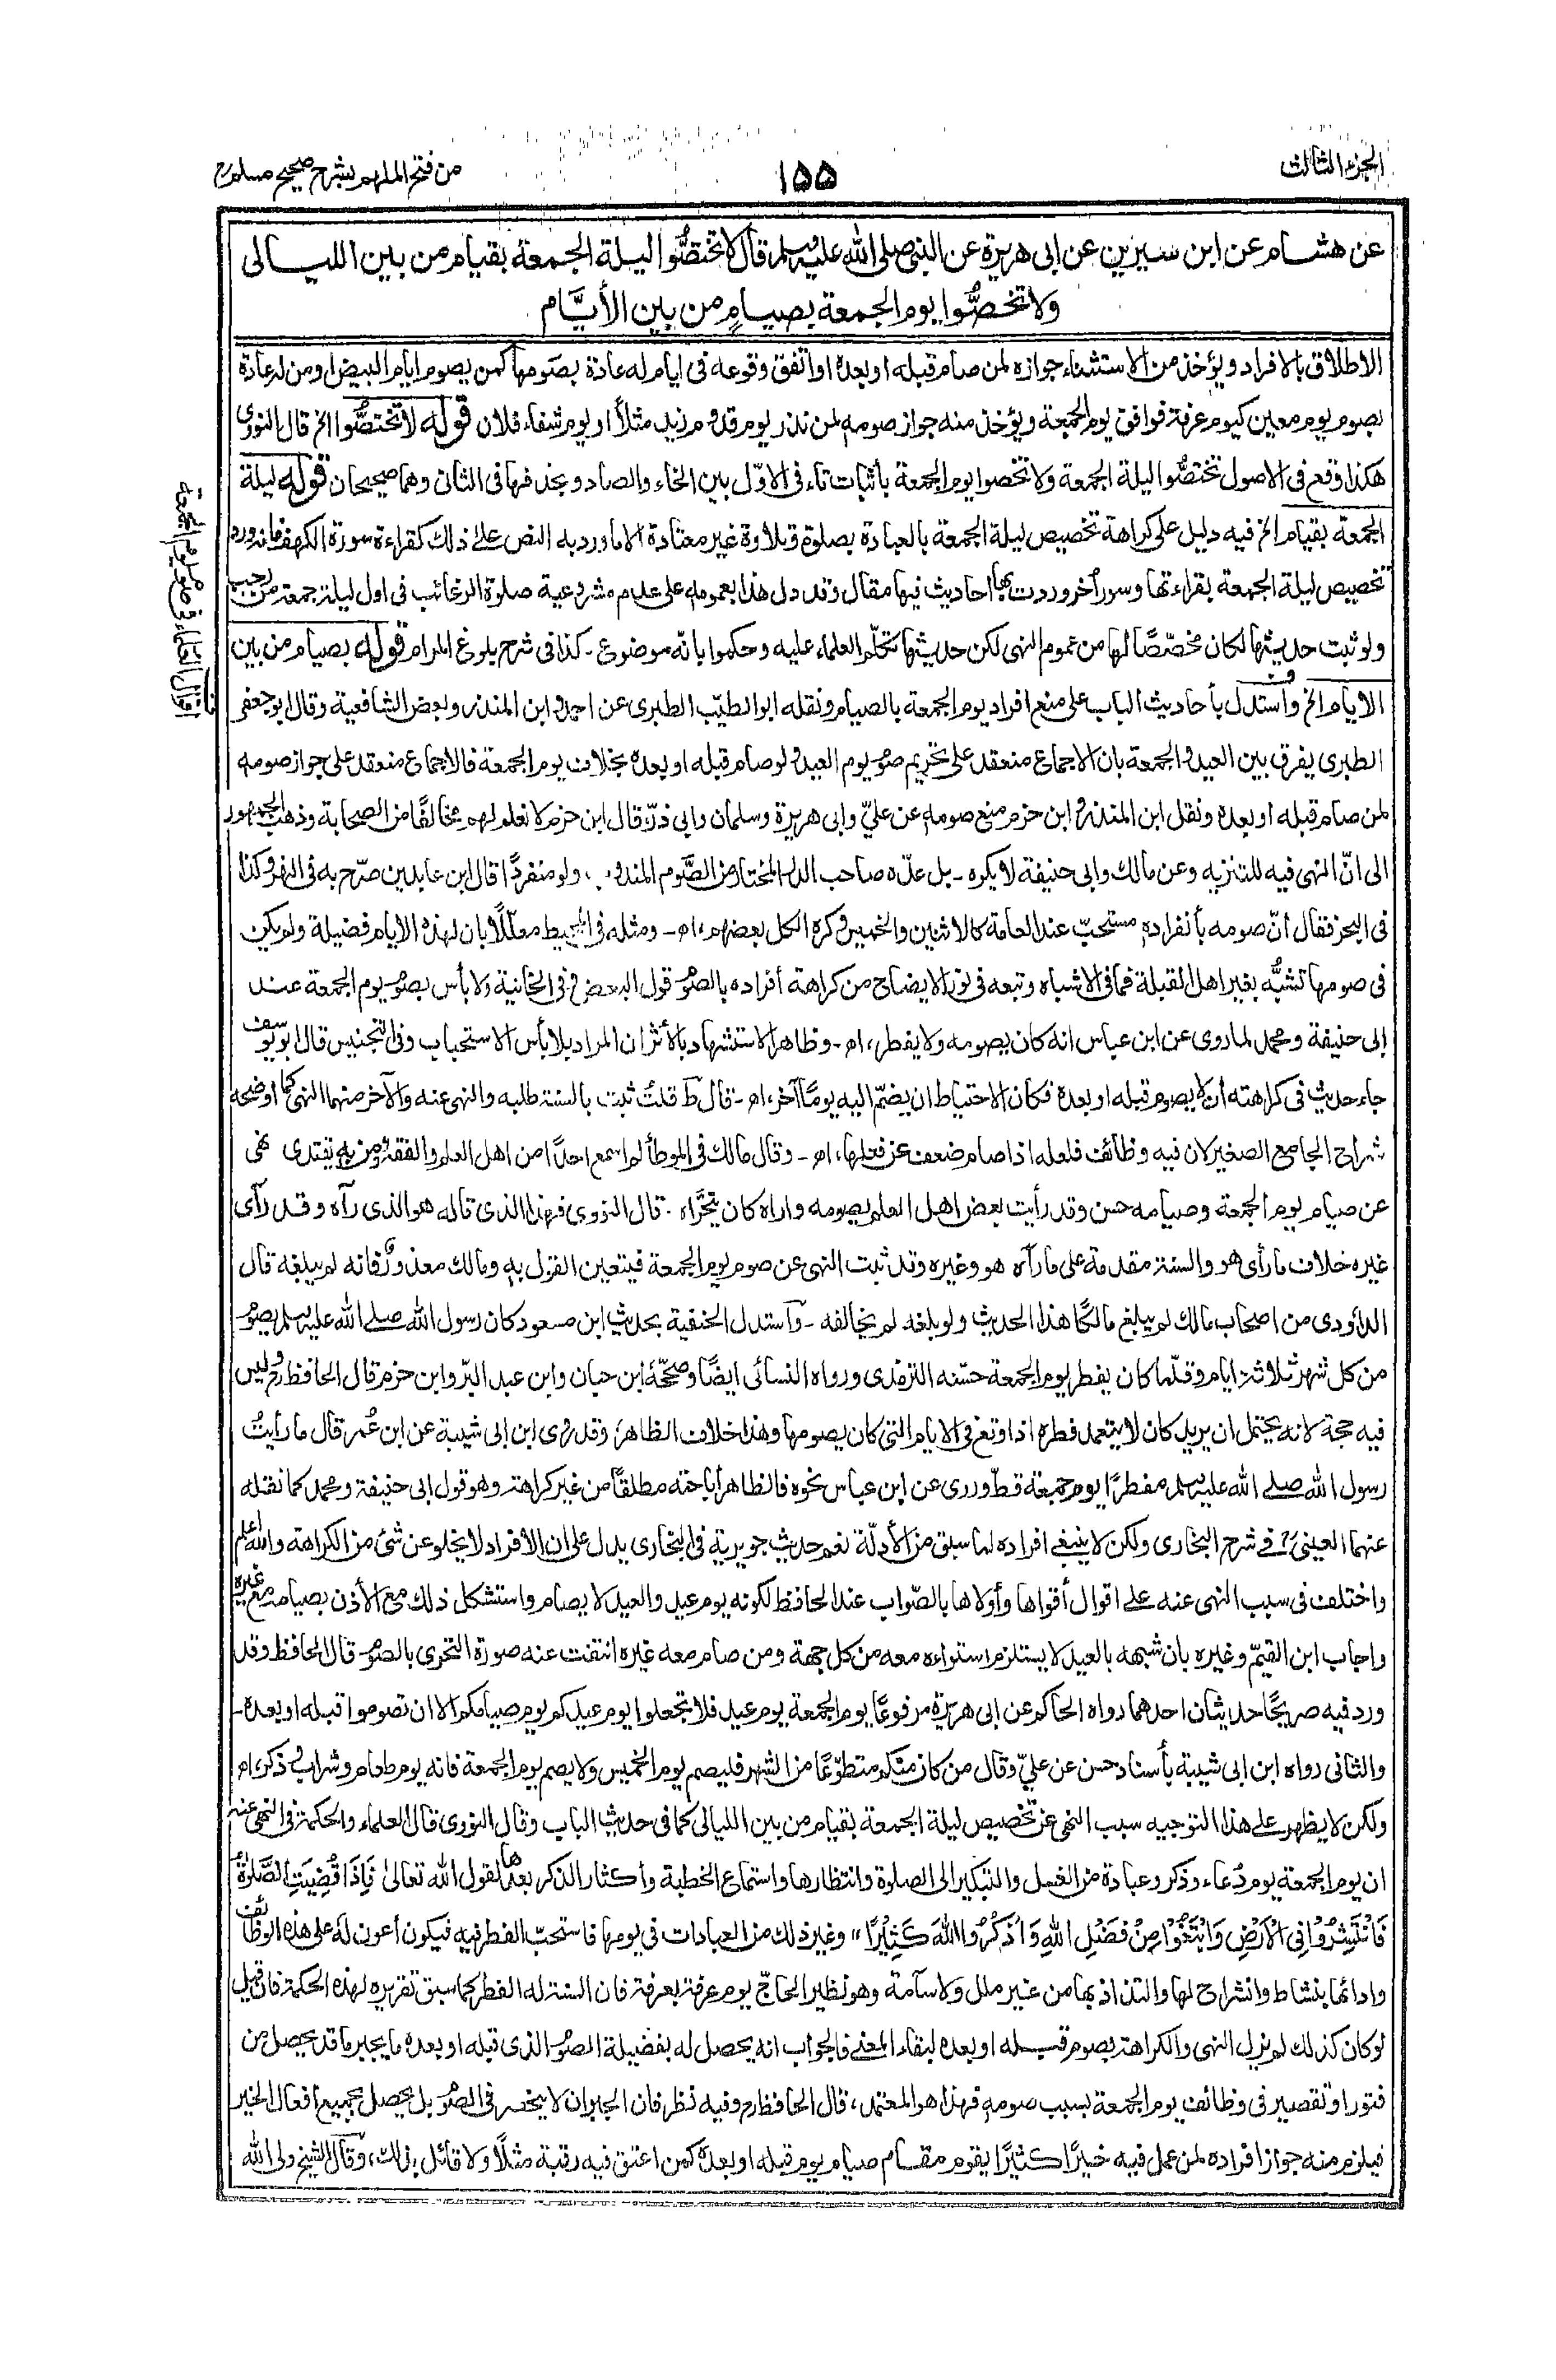 الجزء الثالث
١٥٥
من فتح الملهم بشرح صحيح مسلم
عن هشام عن ابن سيرين عن ابى هريرة عن النبى صلى الله عليه وسلم قال لا تختصُّوا ليلة الجمعة بقيام من بين الليالى
ولا تخصُّوا يوم الجمعة بصيامٍ من بين الأيَّام
الاطلاق بالافراد ويؤخذ من الاستثناء جوازه لمن صام قبله او بعده او اتفق وقوعه فى ايام له عادة بصومها كمن يصوم ايام البيض او من له عادة
بصوم يوم معين كيوم عرفة فوافق يوم الجمعة ويؤخذ منه جواز صومه لمن نذر يوم قدوم زيد مثلاً او يوم شفاء فلان قوله لا تختصُّوا الخ قال النووى
هكذا وقع فى الاصول تختصُّوا ليلة الجمعة ولا تخصوا يوم الجمعة بأثبات تاء فى الاوّل بين الخاء والصاد وبحذفها فى الثان وهما صحيحان قوله ليلة
الجمعة بقيام الخ فيه دليل على كراهة تخصيص ليلة الجمعة بالعبادة بصلوة وتلاوة غير معتادة الا ما ورد به النص على ذلك كقراءة سورة الكهف فانه ورد
تخصيص ليلة الجمعة بقراءتها وسور أخر وردت بها احاديث فيها مقال وقد دل هذا بعمومه على عدم مشروعية صلوة الرغائب فى اول ليلة جمعة من رجب
ولو ثبت حديثها لكان مخصّصًا لها من عموم النهى لكن حديثها تكلّم العلماء عليه وحكموا بانّه موضوع - كذا فى شرح بلوغ المرام قوله بصيام من بين
الايام الخ واستدل بأحاديث الباب على منع افراد يوم الجمعة بالصيام ونقله ابوالطيّب الطبرى عن احمد وابن المنذر وبعض الشافعية وقال ابوجعفر
الطبرى يفرق بين العيد والجمعة بان الاجماع منعقد على تحريم صوم يوم العيد ولو صام قبله او بعده بخلاف يوم الجمعة فالاجماع منعقد على جواز صومه
لمن صام قبله او بعده ونقل ابن المنذر وابن حزم منع صومه عن علىّ وابى هريرة وسلمان وابى ذرّ قال ابن حزم لا نعلم لهم مخالفًا من الصحابة وذهب الجمهور
الى انّ النهى فيه للتنزيه وعن مالك وابى حنيفة لا يكره - بل عدّه صاحب الدر المختار من الصَّوم المندوب، ولو منفردًا قال ابن عابدين صرّح به فى النهر وكذا
فى البحر فقال انّ صومه بأنفراده مستحبّ عند العامة كالاثنين والخميس وكره الكل بعضهم، اھ - ومثله فى المحيط معلّلًا بان لهذه الايام فضيلة ولم يكن
فى صومها تشبُّه بغير اهل القبلة فما فى الاشباه وتبعه فى نور الايضاح من كراهة أفراده بالصوم قول البعض وفى الخانية ولا بأس بصوم يوم الجمعة عند
ابى حنيفة ومحمد لما روى عن ابن عباس انه كان يصومه ولا يفطر، اھ - وظاهر الاستشهاد بالأثر ان المراد بلا بأس الاستحباب وفى التجنيس قال ابويوسف
جاء حديث فى كراهته أن لا يصوم قبله او بعده فكان الاحتياط ان يضمّ اليه يومًا آخر، اھ - قال ط قلتُ ثبت بالسنة طلبه والنهى عنه والآخر منهما النهى كما اوضحه
شراح الجامع الصغير لان فيه وظائف فلعله اذا صام ضعف عن فعلها، اھ - وقال مالك فى الموطأ لم اسمع احدًا من اهل العلم والفقه ومن به يقتدى نهى
عن صيام يوم الجمعة وصيامه حسن وقد رأيت بعض اهل العلم يصومه واراه كان يتحرّاه . قال النووى فهذا الذى قاله هو الذى رآه وقد رآى
غيره خلاف ما رأى هو والسنة مقدمة على ما رآه هو وغيره وقد ثبت النهى عن صوم يوم الجمعة فيتعين القول به ومالك معذورٌ فانه لم يبلغه قال
الداؤدى من اصحاب مالك لم يبلغ مالكًا هذا الحديث ولو بلغه لم يخالفه - واستدل الحنفية بحديث ابن مسعود كان رسول الله صلى الله عليه وسلم يصوم
من كل شهر ثلاثة ايام وقلّما كان يفطر يوم الجمعة حسّنه الترمذى ورواه النسائى ايضًا وصححّه ابن حبان وابن عبد البرّ وابن حزم قال الحافظ وليس
فيه حجة لانه يحتمل ان يريد كان لا يتعمد فطره اذا وقع فى الايام التى كان يصومها وهذا خلاف الظاهر، وقد روى ابن ابى شيبة عن ابن عُمر قال ما رأيتُ
رسول الله صلى الله عليه وسلم مفطرًا يوم جمعة قطّ وروى عن ابن عباس نحوه فالظاهر أباحته مطلقًا من غير كراهته وهو قول ابى حنيفة ومحمد كما نقله
عنهما العينىؒ فى شرح البخارى ولكن لا ينبغى افراده لما سبق من الأدلّة نعم حديث جويرية فى البخارى يدل على ان الأفراد لا يخلو عن شئ من الكراهة والله اعلم
واختلف فى سبب النهى عنه على اقوال أقواها وأولاها بالصّواب عند الحافظ لكونه يوم عيد والعيد لا يصام واستشكل ذلك مع الأذن بصيامه مع غيره
واجاب ابن القيّم وغيره بان شبهه بالعيد لا يستلزم استواءه معه من كل جهة ومن صام معه غيره انتفت عنه صورة التحرى بالصوم قال الحافظ وقد
ورد فيه صريحًا حديثان احدهما رواه الحاكم عن ابى هريرة مرفوعًا يوم الجمعة يوم عيد فلا تجعلوا يوم عيدكم يوم صيامكم الا ان تصوموا قبله او بعده -
والثانى رواه ابن ابى شيبة بأسناد حسن عن علىّ وقال من كان منكم متطوّعًا من الشهر فليصم يوم الخميس ولا يصم يوم الجمعة فانه يوم طعام وشراب وذكر، اھ
ولكن لا يظهر على هذا التوجيه سبب النهى عن تخصيص ليلة الجمعة بقيام من بين الليالى كما فى حديث الباب وقال النووى قال العلماء والحكمة فى النهى عنه
ان يوم الجمعة يوم دُعاء وذكر وعبادة من الغسل والتبكير الى الصلوة وانتظارها واستماع الخطبة وأكثار الذكر بعدها لقول الله تعالى فَاِذَا قُضِيَتِ الصَّلٰوةُ
فَانْتَشِرُوْا فِى الْاَرْضِ وَابْتَغُوْا مِنْ فَضْلِ اللهِ وَاذْكُرُوا اللهَ كَثِيْرًا،، وغير ذلك من العبادات فى يومها فاستحبّ الفطر فيه فيكون أعون له على هذه الوظائف
وادائها بنشاط وانشراح لها والتذاذ بها من غير ملل ولا سآمة وهو نظير الحاجّ يوم عرفة بعرفة فان السنة له الفطر كما سبق تقريره لهذه الحكمة فان قيل
لو كان كذلك لم يزل النهى والكراهة بصوم قبله او بعده لبقاء المعنى فالجواب انه يحصل له بفضيلة الصوم الذى قبله او بعده ما يجبر ما قد يحصل من
فتور او تقصير فى وظائف يوم الجمعة بسبب صومه فهذا هو المعتمد، قال الحافظ رح وفيه نظر فان الجبران لا ينحصر فى الصوم بل يحصل بجميع أفعال الخير
فيلزم منه جواز افراده لمن عمل فيه خيرًا كثيرًا يقوم مقام صيام يوم قبله او بعده كمن اعتق فيه رقبة مثلًا ولا قائل بذلك، وقال الشيخ ولى الله
اقوال العلماء فى صوم يوم الجمعة